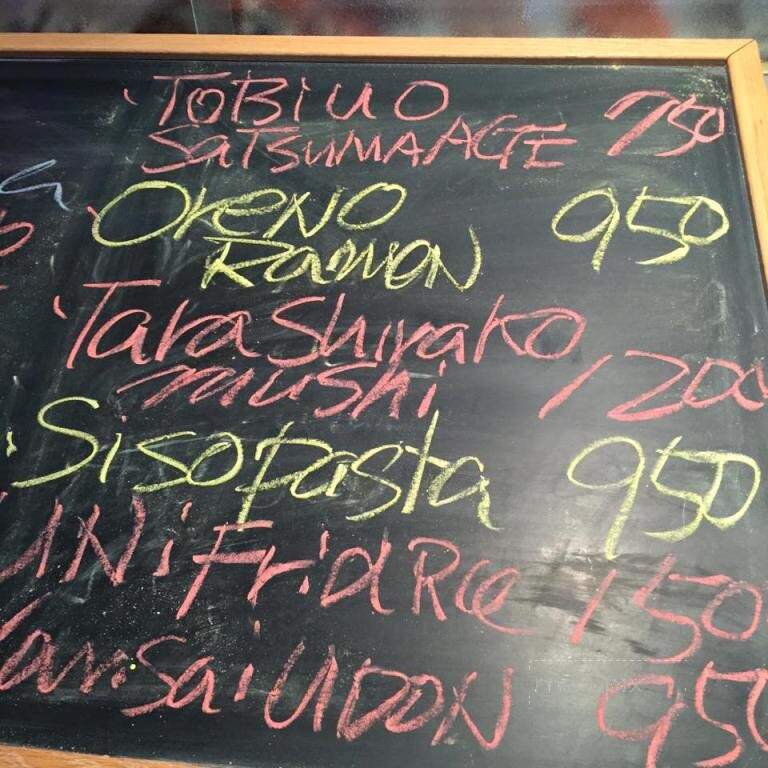 TOBiUO
SATSUMAAGE 750
OKENO 950
RAMON
TaraShirako
mushi 1200
Siso pasta 950
UNi Frid Rce 150
Sai UDON 950